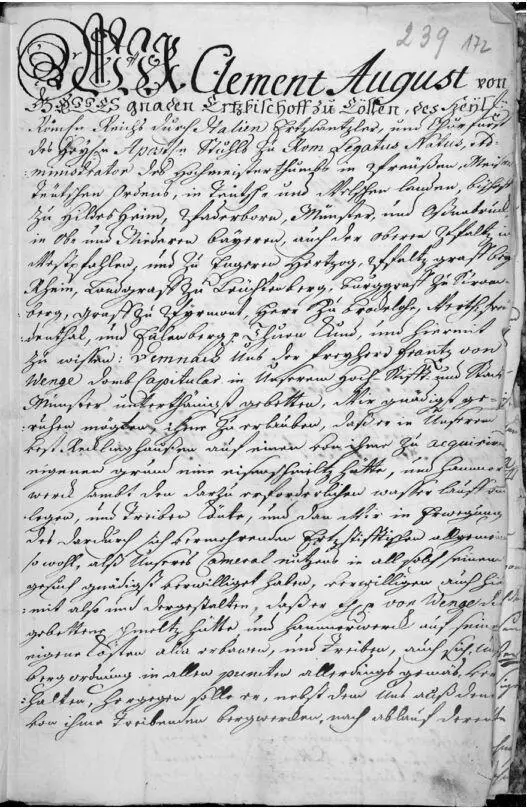 239 172
Wir Clement August von
GOTTES gnaden Ertzbischoff zu Cöllen, des Heyl:
Römn Reichs durch Italien Ertzcantzler, und Churfürst
des Heyln Apostn Stühls zu Rom Legatus Natus, Ad-
ministrator des Hochmeisterthumbs in Preüßen, Meister
Teütschen Ordens, in Teütsch- und Welschen landen, bischoff
zu Hildesheim, Paderborn, Münster, und Oßnabrück
in Ob- und Niederen bayeren, auch der oberen Pfaltz, in
Westphahlen, und zu Engeren Hertzog, Pfaltzgraff bey
Rhein, Landgraff zu Leüchtenberg, burggraff zu Strom-
berg, Graff zu Pyrmont, Herr zu borckelohe, Werth, freü-
denthal, und Eülenberg p Thuen Kund, und hiermit
zu wißen: Demnach Uns der freyherr frantz von
Wenge dombCapitular in Unserem Hoch Stifft und Statt
Münster unterthänigst gebetten, Wir gnädigst ge-
ruhen mögten, ihme zu erlauben, daß er in Unserem
Vest Recklinghausen auf einen von ihme zu acquiriren
eigenen grund eine eisenschmeltz hütte, und hammer
werck sambt den darzu erforderlichen wasserlauff an
legen, und treiben könte, und dan Wir in Erwegung
des dardurch sich vermehrenden Ertzstifftischen allgemein
so wohl, alß Unseres Cameral nutzens in all solch seinem
gesuch gnädigst verwilliget haben, verwilligen auch hie
mit also und dergestalten, daß er von Wenge die
gebettene schmeltz hütte und hammerwerck auf seine
eigene Kösten alda erbawen, und treiben, auch sich Unser
bergordnung in allen puncten allerdings gemäs ver-
halten, hergegen solle er, nebst dem Uns auß denen
von ihme treibenden bergwercken, nach ablauff deren